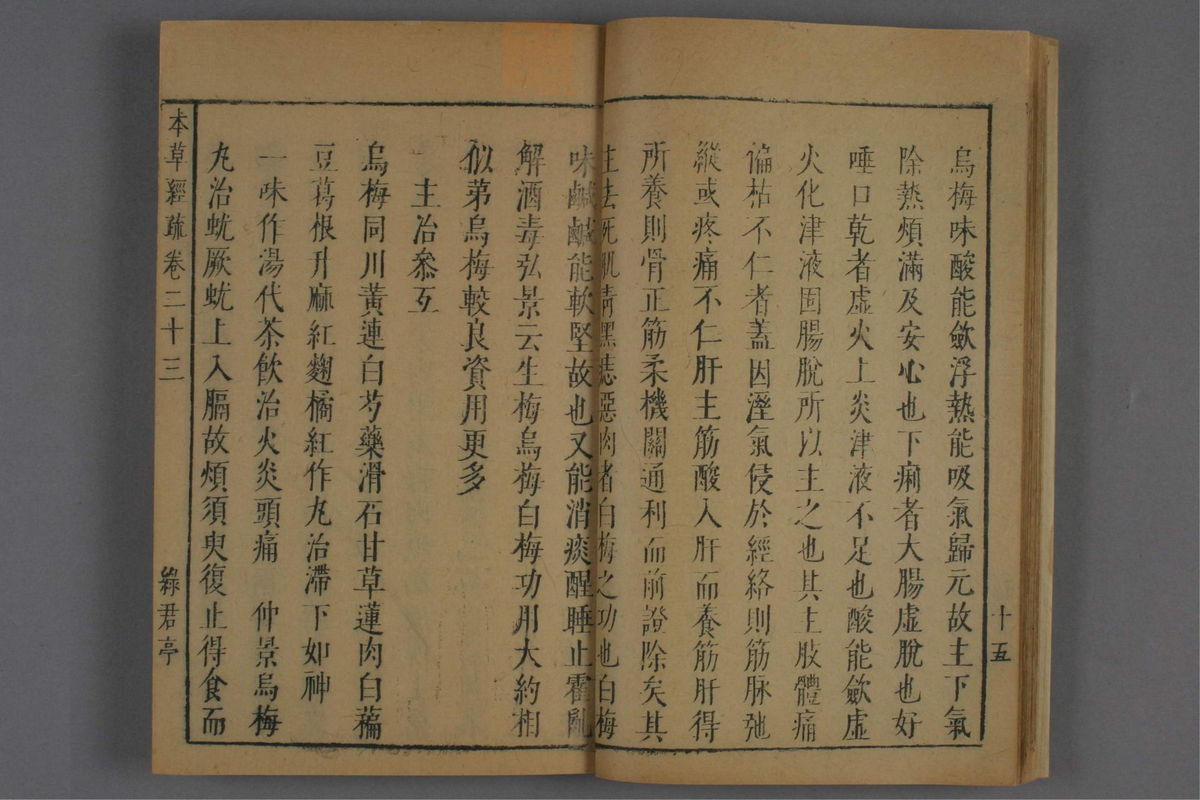 烏梅味酸能歛浮熱能吸氣歸元故主下氣
除熱煩滿及安心也下痢者大腸虛脫也好
唾口乾者虛火上炎津液不足也酸能歛虛
火化津液固腸脫所以主之也其主肢體痛
偏枯不仁者蓋因溼氣侵於經絡則筋脉弛
縱或疼痛不仁肝主筋酸入肝而養筋肝得
所養則骨正筋柔機關通利而前證除矣其
主去死肌青黑痣惡肉者白梅之功也白梅
味鹹鹹能軟堅故也又能消痰醒睡止霍亂
解酒毒弘景云生梅烏梅白梅功用大約相
似第烏梅較良資用更多
主治參互
烏梅同川黃連白芍藥滑石甘草蓮肉白藊
豆葛根升麻紅麴橘紅作丸治滯下如神
一味作湯代茶飮治火炎頭痛 仲景烏梅
丸治蚘厥蚘上入膈故煩須臾復止得食而
本草經疏卷二十三
綠君亭
十五